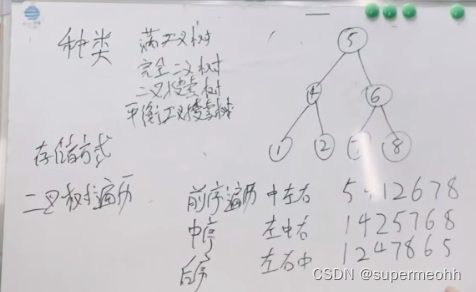 种类 满二叉树
完全二叉树
二叉搜索树
平衡二叉搜索树
5
4 6
1 2 8
存储方式
二叉树遍历 前序遍历 中左右 5 12678
中序 左中右 1425768
后序 左右中 1247865
CSDN @supermeohh